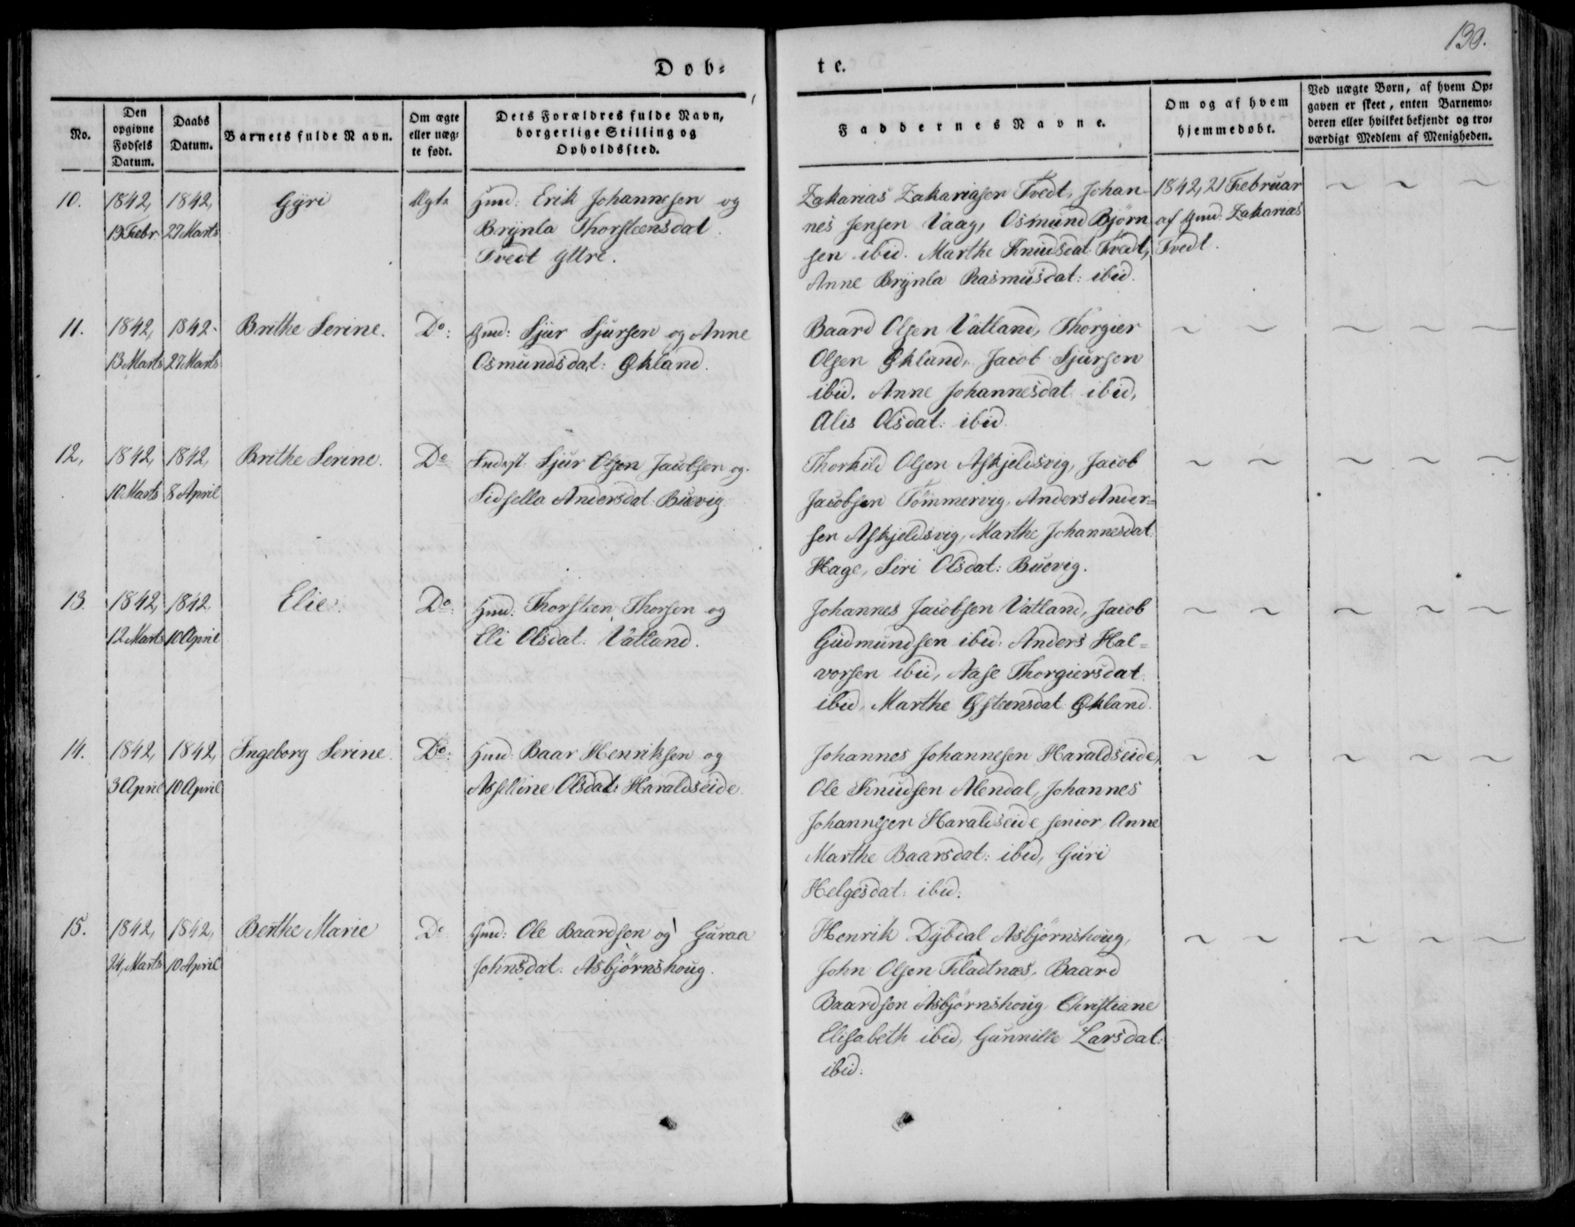 130.
Døb=
te.
No.
Den opgivne Fødsels Datum.
Daabs Datum.
Barnets fulde Navn.
Om ægte eller uæg= te født.
Dets Forældres fulde Navn, borgerlige Stilling og Opholdssted.
Faddernes Navne.
Om og af hvem hjemmedøbt.
Ved uægte Børn, af hvem Op= gaven er skeet, enten Barnemo= deren eller hvilket bekjendt og tro= værdigt Medlem af Menigheden.
10.
1842,
19 Febr
1842,
27 Marts
Gÿri
Ægte
Gmd: Erik Johannesen og
Brÿnla Thorsteensdat.
Tvedt Yttre.
Zakarias Zakariasen Tvedt, Johan-
nes Jensen Vaag, Osmund Bjørn
sen ibid. Marthe Knudsdat Tvedt,
Anne Brÿnla Rasmusdat: ibid.
1842, 21 Februar
af Gmd: Zakarias
Tvedt.
11.
1842,
13 Marts
1842.
27 Marts
Brithe Serine.
Do:
Gmd: Sjur Sjursen og Anne
Osmundsdat: Økland.
Baard Olsen Vatland, Thorgier
Olsen Økland, Jacob Sjursen
ibid. Anne Johannesdat ibid,
Alis Olsdat: ibid
12,
1842,
10 Marts
1842,
8 April
Brithe Serine.
Do
Indest. Sjur Olsen Jacobsen og
Sidsella Andersdat. Buevig.
Thorkild Olsen Askjeldsvig, Jacob
Jacobsen Tømmervig, Anders Ander=
sen Askjeldsvig, Marthe Johannesdat
Hage, Siri Olsdat: Buevig.
13.
1842,
12 Marts
1842
10 April
Elie.
Do:
Gmd. Thorsteen Thorsen og
Eli Olsdat. Vatland.
Johannes Jacobsen Vatland, Jacob
Gudmundsen ibid. Anders Hal=
vorsen ibid, Aase Thorgiersdat
ibid, Marthe Østeensdat Økland.
14.
1842,
3 April
1842,
10 April
Ingeborg Serine.
Do:
Gmd Baar Henriksen og
Asseline Olsdat: Haraldseide.
Johannes Johannesen Haraldseide,
Ole Knudsen Alendal, Johannes
Johannesen Haraldseide senior, Anne
Marthe Baarsdat: ibid, Guri
Helgesdat: ibid.
15.
1842,
24 Marts
1842,
10 April
Berthe Marie
Do
Gmd: Ole Baardsen og Guraa
Johnsdat. Asbjørnshoug.
Henrik Dÿbdal Asbjørnshoug,
John Olsen Fladtnæs, Baard
Baardsen Asbjørnshoug Christiane
Elisabeth ibid, Gunnille Larsdat:
ibid.